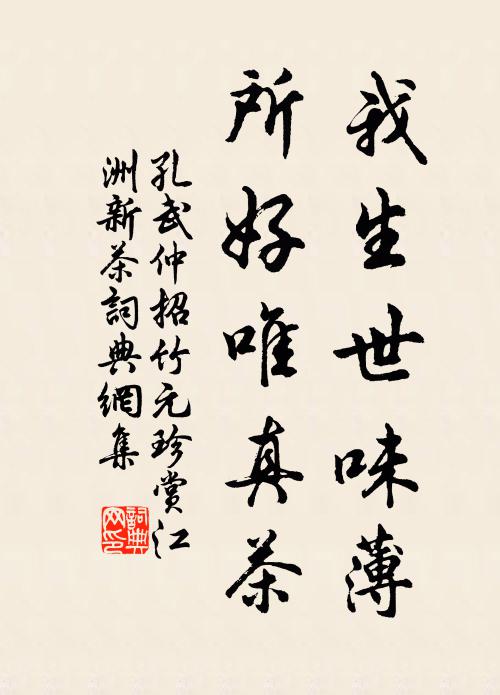 我生世味薄
所好唯真茶
孔武仲招竹元珍賞江
洲新茶詞典網集
詞典
网印